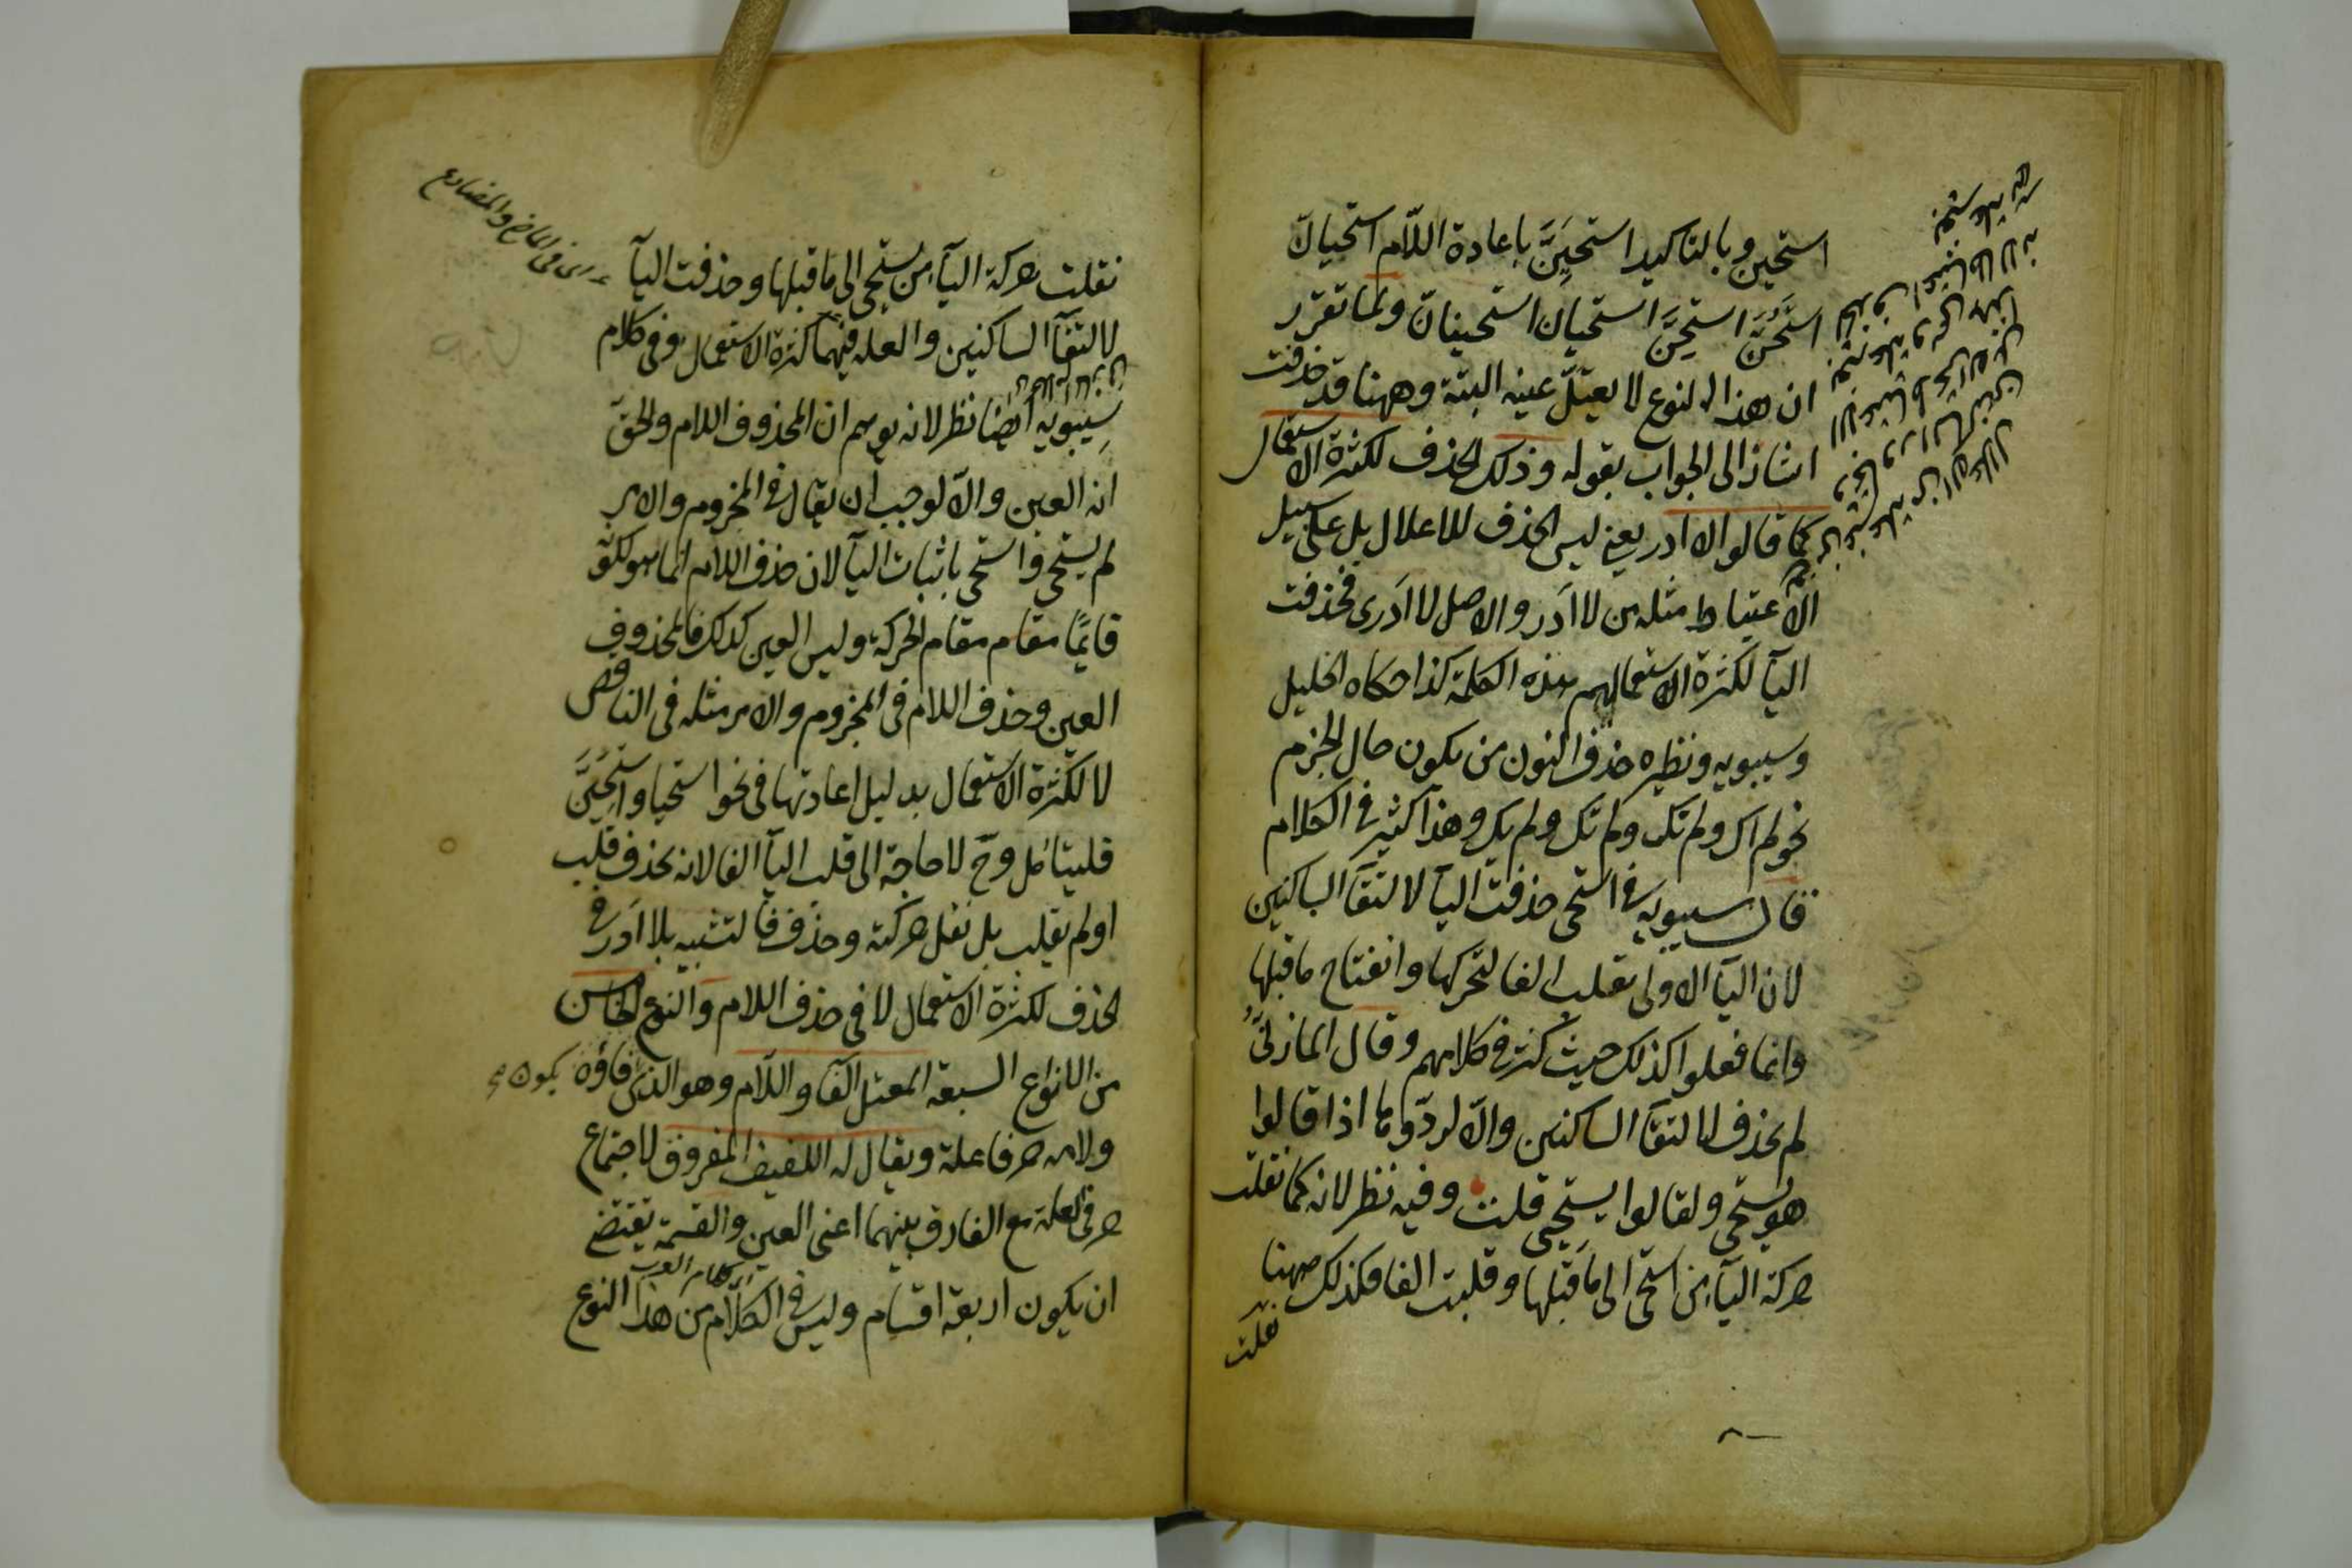 استحيين وبالتاكيد استحيَيَنَّ باعادة اللّام استحيانّ
استحيُنَّ استحيِنَّ استحيانّ استحينانّ ولما تقرر
ان هذا النوع لا يعتلّ عينه البتة وههنا قد حذفت
اشار الى الجواب بقوله وذلك الحذف لكثرة الاستعمال
كما قالوا لا ادر يعنى ليس الحذف للاعلال بل على سبيل
الاعتباط مثله من لا اَدر والاصل لا اَدرى فحذفت
اليآ لكثرة الاستعمالهم هذه الكلمة كذا حكاه الخليل
وسيبويه ونظيره حذف النون من يكون حال الجزم
نحو لم اك ولم نك ولم تك ولم يك وهذا كثير فى الكلام
قال سيبويه فى استحى حذفت اليآ لالتقآ الساكنين
لان اليآ الاولى تقلب الفا لتحركها وانفتاح ما قبلها
وانما فعلوا كذلك حيث كثر فى كلامهم وقال المازنىّ
لم يحذف لالتقآ الساكنين والّا لردّوها اذا قالوا
هو يستحى ولقالوا يستحيى قلت وفيه نظر لانه كما نقلت
حركة اليآ من استحى الى ما قبلها وقلبت الفا فكذلك ههنا
نقلت
نقلت حركة اليآ من يستحى الى ما قبلها وحذفت اليآ
فى الماضى والمضارع
لالتقآ الساكنين والعلة فيهما كثرة الاستعمال وفى كلام
سيبويه ايضا نظر لانه يوهم ان المحذوف اللام والحق
انه العين والّا لوجب ان يقال فى المجزوم والامر
لم يستحى واستحى باثبات اليآ لان حذف اللام انما هو لكونه
قايمًا مقام مقام الحركة وليس العين كذلك فالمحذوف
العين وحذف اللام فى المجزوم والامر مثله فى الناقص
لا لكثرة الاستعمال بدليل اعادتها فى نحو استحيا واستحيَنَّ
فليتامل وح لا حاجة الى قلب اليآ الفا لانه يحذف قلب
او لم يقلب بل نقل حركته وحذف فالتشبيه بلا اَدر فى
الحذف لكثرة الاستعمال لا فى حذف اللام والنوع الخامس
من الانواع السبعة المعتل الفآ واللّام وهو الذى فاؤه يكون
ولامه حرفا علة ويقال له اللفيف المفروق لاجتماع
حرفى العلة مع الفارق بينهما اعنى العين والقسمة تقتضى
اى كلام العرب
ان يكون اربعة اقسام وليس فى الكلام من هذا النوع